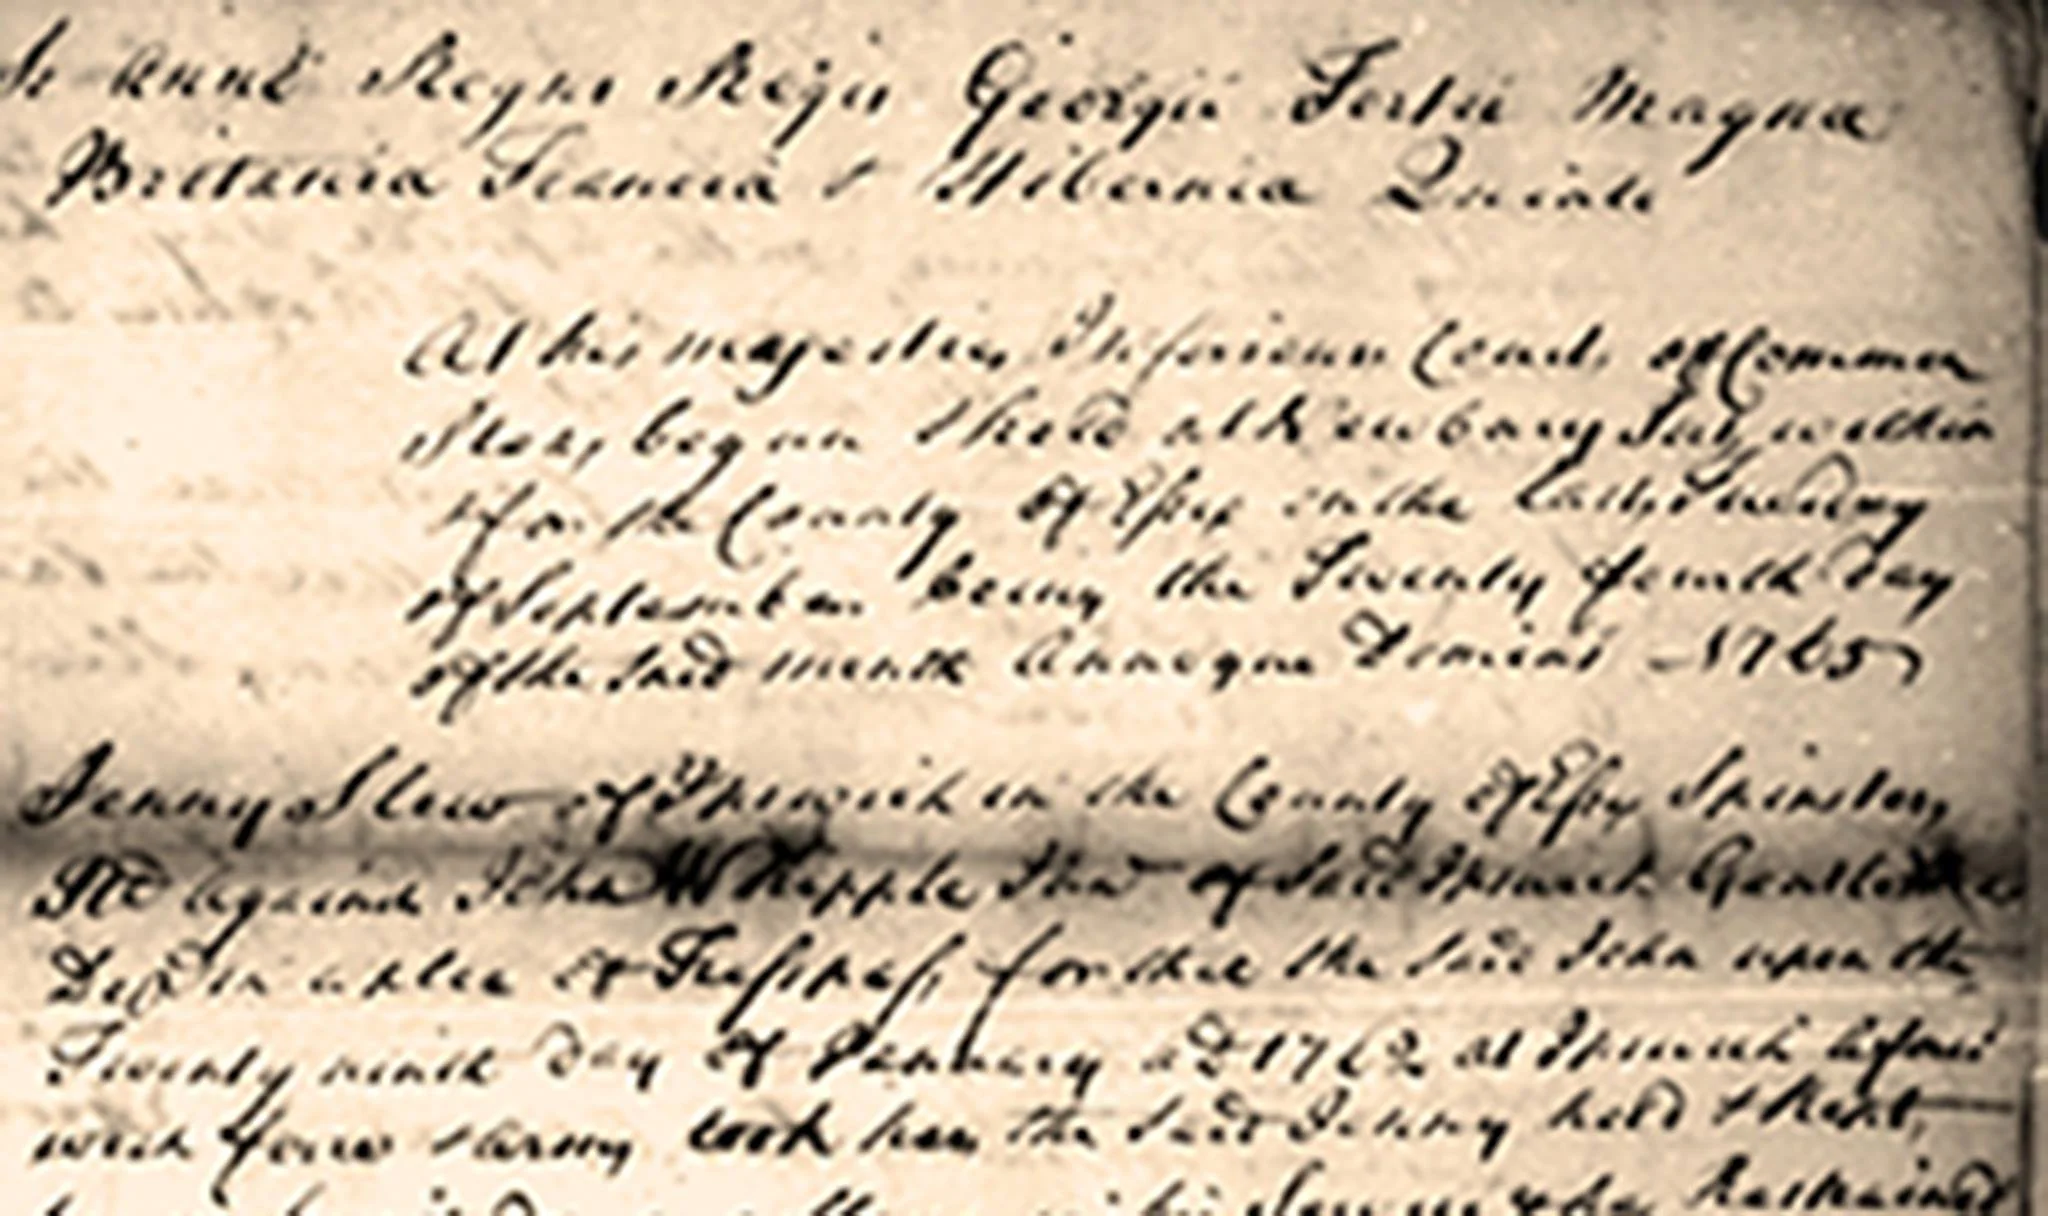 Anno Regni Regis Georgii Tertii Magnæ
Britania Francia & Hibernia Quinto
At his majesties Inferiour Court of Common
Pleas, began & held at Newbury Port within
& for the County of Essex on the last Tuesday
of September being the Twenty fourth day
of the said month Annoque Domini 1765
Jenny Slew of Ipswich in the County of Essex Spinster,
Plt against John Whipple Jun of said Ipswich Gentleman
Deft in a plea of Trespass, for that the said John upon the
Twenty ninth day of January AD 1762 at Ipswich aforesd
with force & arms took her the said Jenny held & kept
her restrained